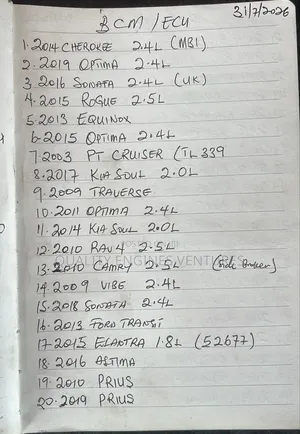 31/7/2026
BCM/ECU
1. 2014 CHEROKEE 2.4L (MB1)
2. 2019 OPTIMA 2.4L
3. 2016 SONATA 2.4L (UK)
4. 2015 ROGUE 2.5L
5. 2013 EQUINOX
6. 2015 OPTIMA 2.4L
7. 2003 PT CRUISER (TL339
8. 2017 KIA SOUL 2.0L
9. 2009 TRAVERSE
10. 2011 OPTIMA 2.4L
11. 2014 KIA SOUL 2.0L
12. 2010 RAV4 2.5L
QUALITY ENGINES VENTURES
13. 2010 CAMRY 2.5L
14. 2009 VIBE 2.4L
15. 2018 SONATA 2.4L
16. 2013 FORD TRANSIT
17. 2015 ELANTRA 1.8L (52677)
18. 2016 ALTIMA
19. 2010 PRIUS
20. 2019 PRIUS